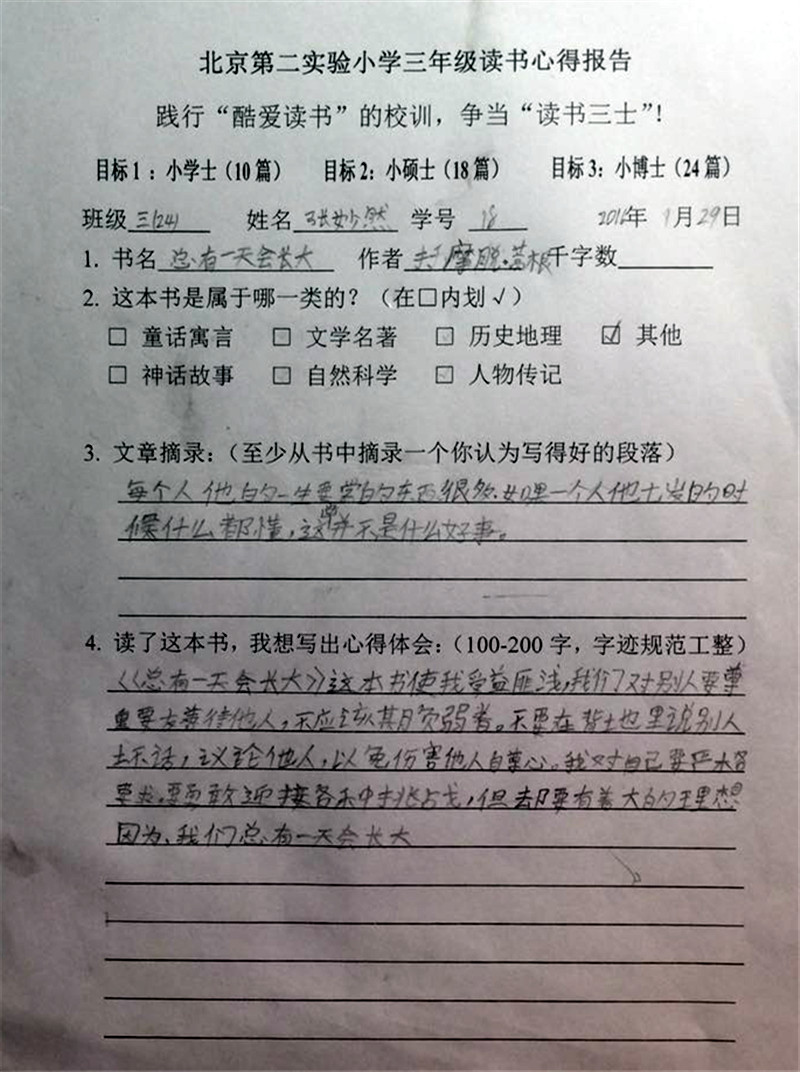 北京第二实验小学三年级读书心得报告
践行“酷爱读书”的校训，争当“读书三士”！
目标1：小学士(10篇) 目标2：小硕士(18篇) 目标3：小博士(24篇)
班级 三(24) 姓名 张妙然 学号 18 2016年 1月29日
1. 书名 总有一天会长大 作者 摩脱·萻根 千字数
2. 这本书是属于哪一类的？（在□内划√）
□ 童话寓言 □ 文学名著 □ 历史地理 ☑ 其他
□ 神话故事 □ 自然科学 □ 人物传记
3. 文章摘录：（至少从书中摘录一个你认为写得好的段落）
每个人他的一生要学的东西很多.如果一个人他七岁的时
候什么都懂，这并不是什么好事。
4. 读了这本书，我想写出心得体会：（100-200字，字迹规范工整）
《总有一天会长大》这本书使我受益匪浅，我们对别人要尊
重要友善待他人，不应该其负弱者。不要在背地里说别人
坏话，议论他人，以免伤害他人自尊心。我对自己要严格
要求，要勇敢迎接各种挑战，但却要有着大的理想
因为、我们总有一天会长大